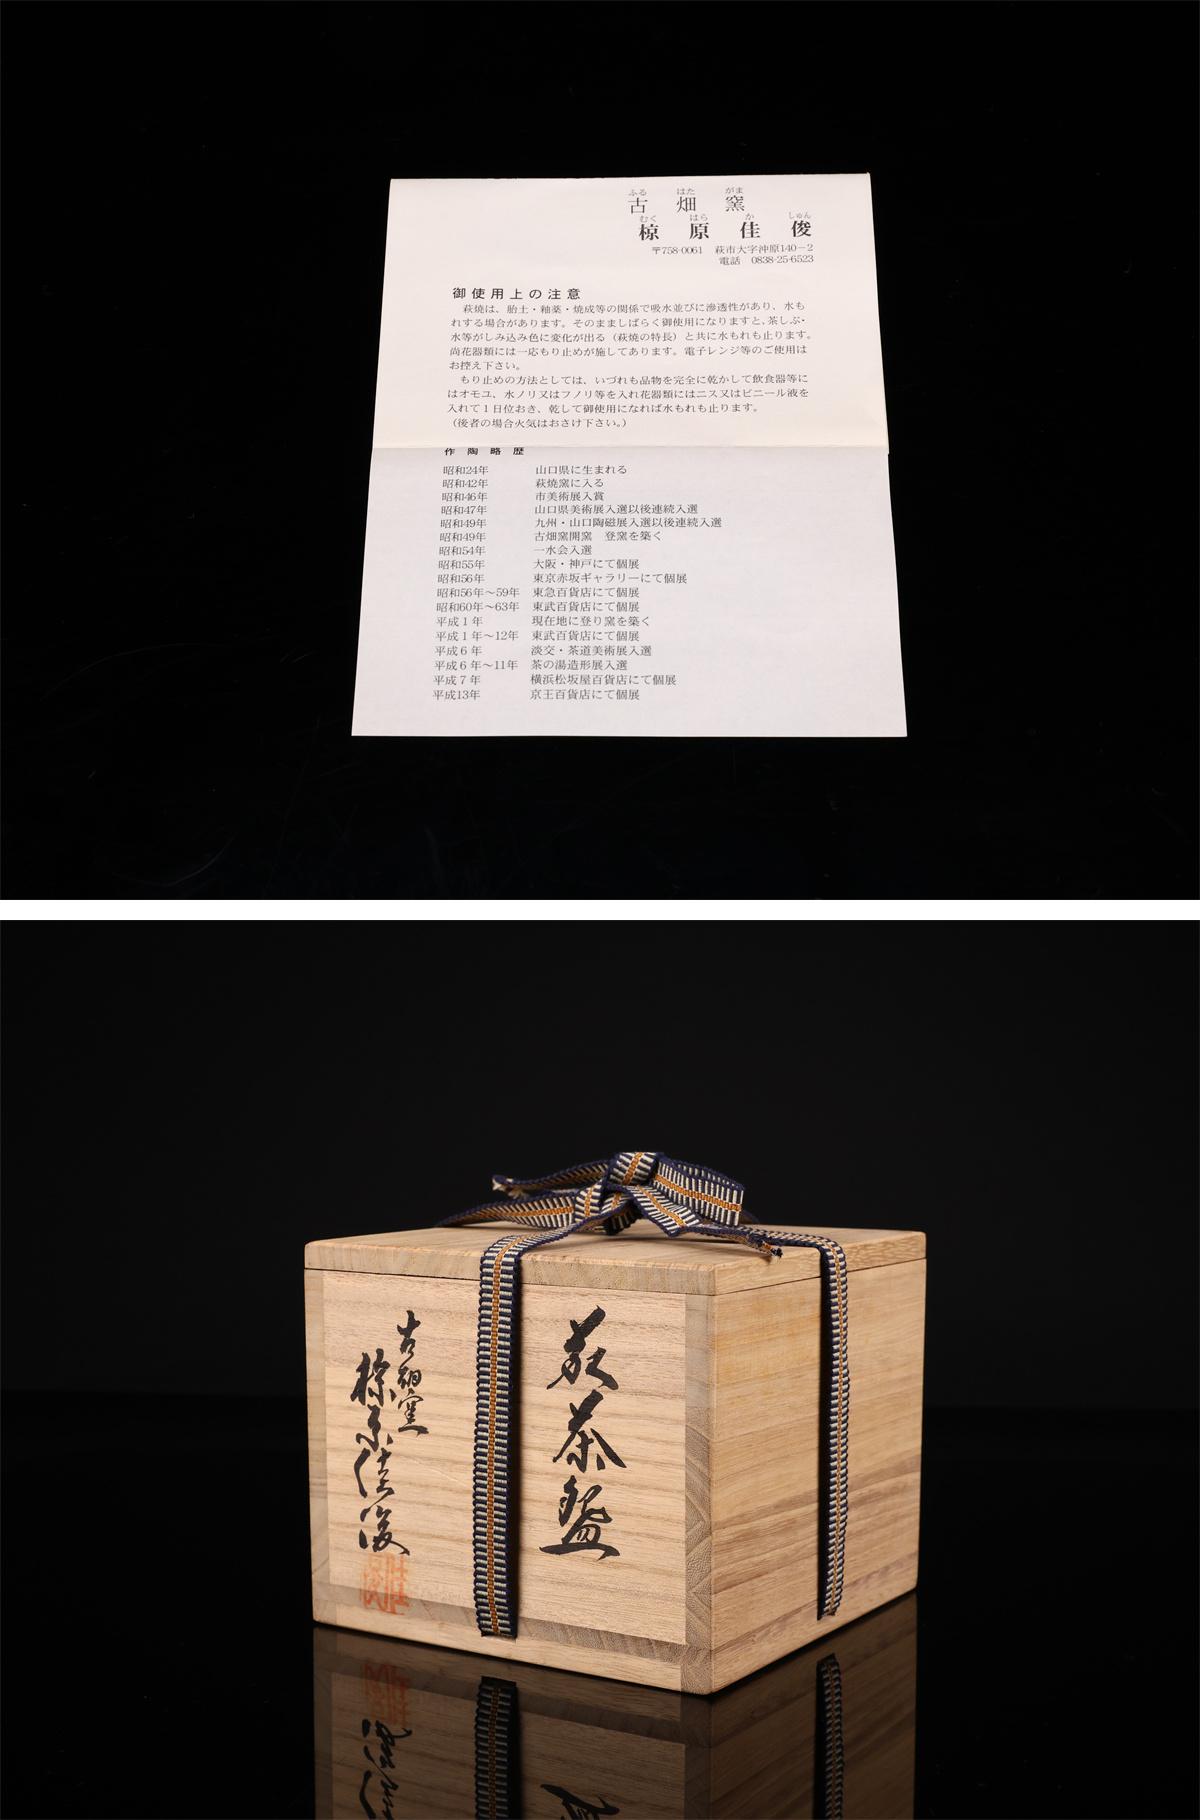 ふる はた がま
古 畑 窯
むく はら か しゅん
椋 原 佳 俊
〒758-0061 萩市大字沖原140－2
電話 0838-25-6523
御使用上の注意
萩焼は、胎土・釉薬・焼成等の関係で吸水並びに滲透性があり、水も
れする場合があります。そのまましばらく御使用になりますと、茶しぶ・
水等がしみ込み色に変化が出る（萩焼の特長）と共に水もれも止ります。
尚花器類には一応もり止めが施してあります。電子レンジ等のご使用は
お控え下さい。
もり止めの方法としては、いづれも品物を完全に乾かして飲食器等に
はオモユ、水ノリ又はフノリ等を入れ花器類にはニス又はビニール液を
入れて１日位おき、乾して御使用になれば水もれも止ります。
（後者の場合火気はおさけ下さい。）
作 陶 略 歴
昭和24年 山口県に生まれる
昭和42年 萩焼窯に入る
昭和46年 市美術展入賞
昭和47年 山口県美術展入選以後連続入選
昭和49年 九州・山口陶磁展入選以後連続入選
昭和49年 古畑窯開窯 登窯を築く
昭和54年 一水会入選
昭和55年 大阪・神戸にて個展
昭和56年 東京赤坂ギャラリーにて個展
昭和56年～59年 東急百貨店にて個展
昭和60年～63年 東武百貨店にて個展
平成１年 現在地に登り窯を築く
平成１年～12年 東武百貨店にて個展
平成６年 淡交・茶道美術展入選
平成６年～11年 茶の湯造形展入選
平成７年 横浜松坂屋百貨店にて個展
平成13年 京王百貨店にて個展
萩茶盌
古畑窯
椋原佳俊